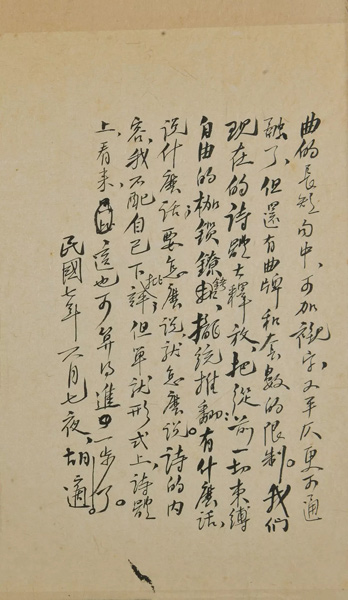 曲的長短句中,可加襯字,又平仄更可通
融了,但還有曲牌和套數的限制。我們
現在的詩體大釋放,把從前一切束縛
自由的枷鎖鐐銬,攏統推翻。有什麼話,
说什麼話;要怎麼說就怎麼說。詩的内
容,我不配自己下批評,但單就形式上詩體
上,看来,這也可算得進一步了。
民國七年六月七夜,胡適。